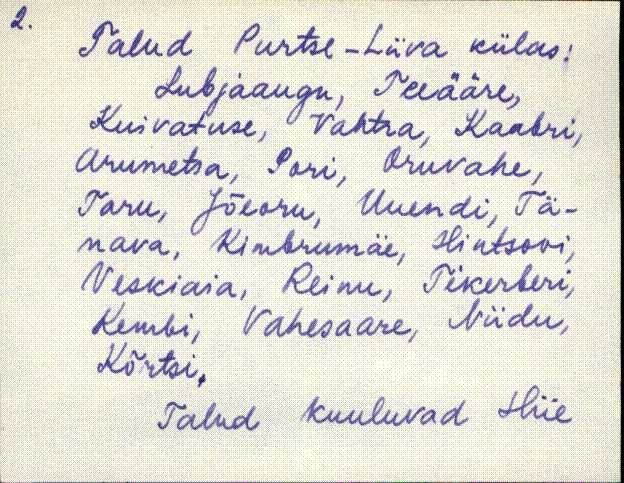 2.
Talud Purtse-Liiva külas:
Lubjaaugu, Teeääre,
Kuivatuse, Vahtra, Kaabri,
Arumetsa, Pori, Oruvahe,
Taru, Jõeoru, Uuendi, Tä-
nava, Kimbrumäe, Hintsovi,
Veskiaia, Reinu, Tikerberi,
Kembi, Vahesaare, Niidu,
Kõrtsi.
Talud kuuluvad Hiie